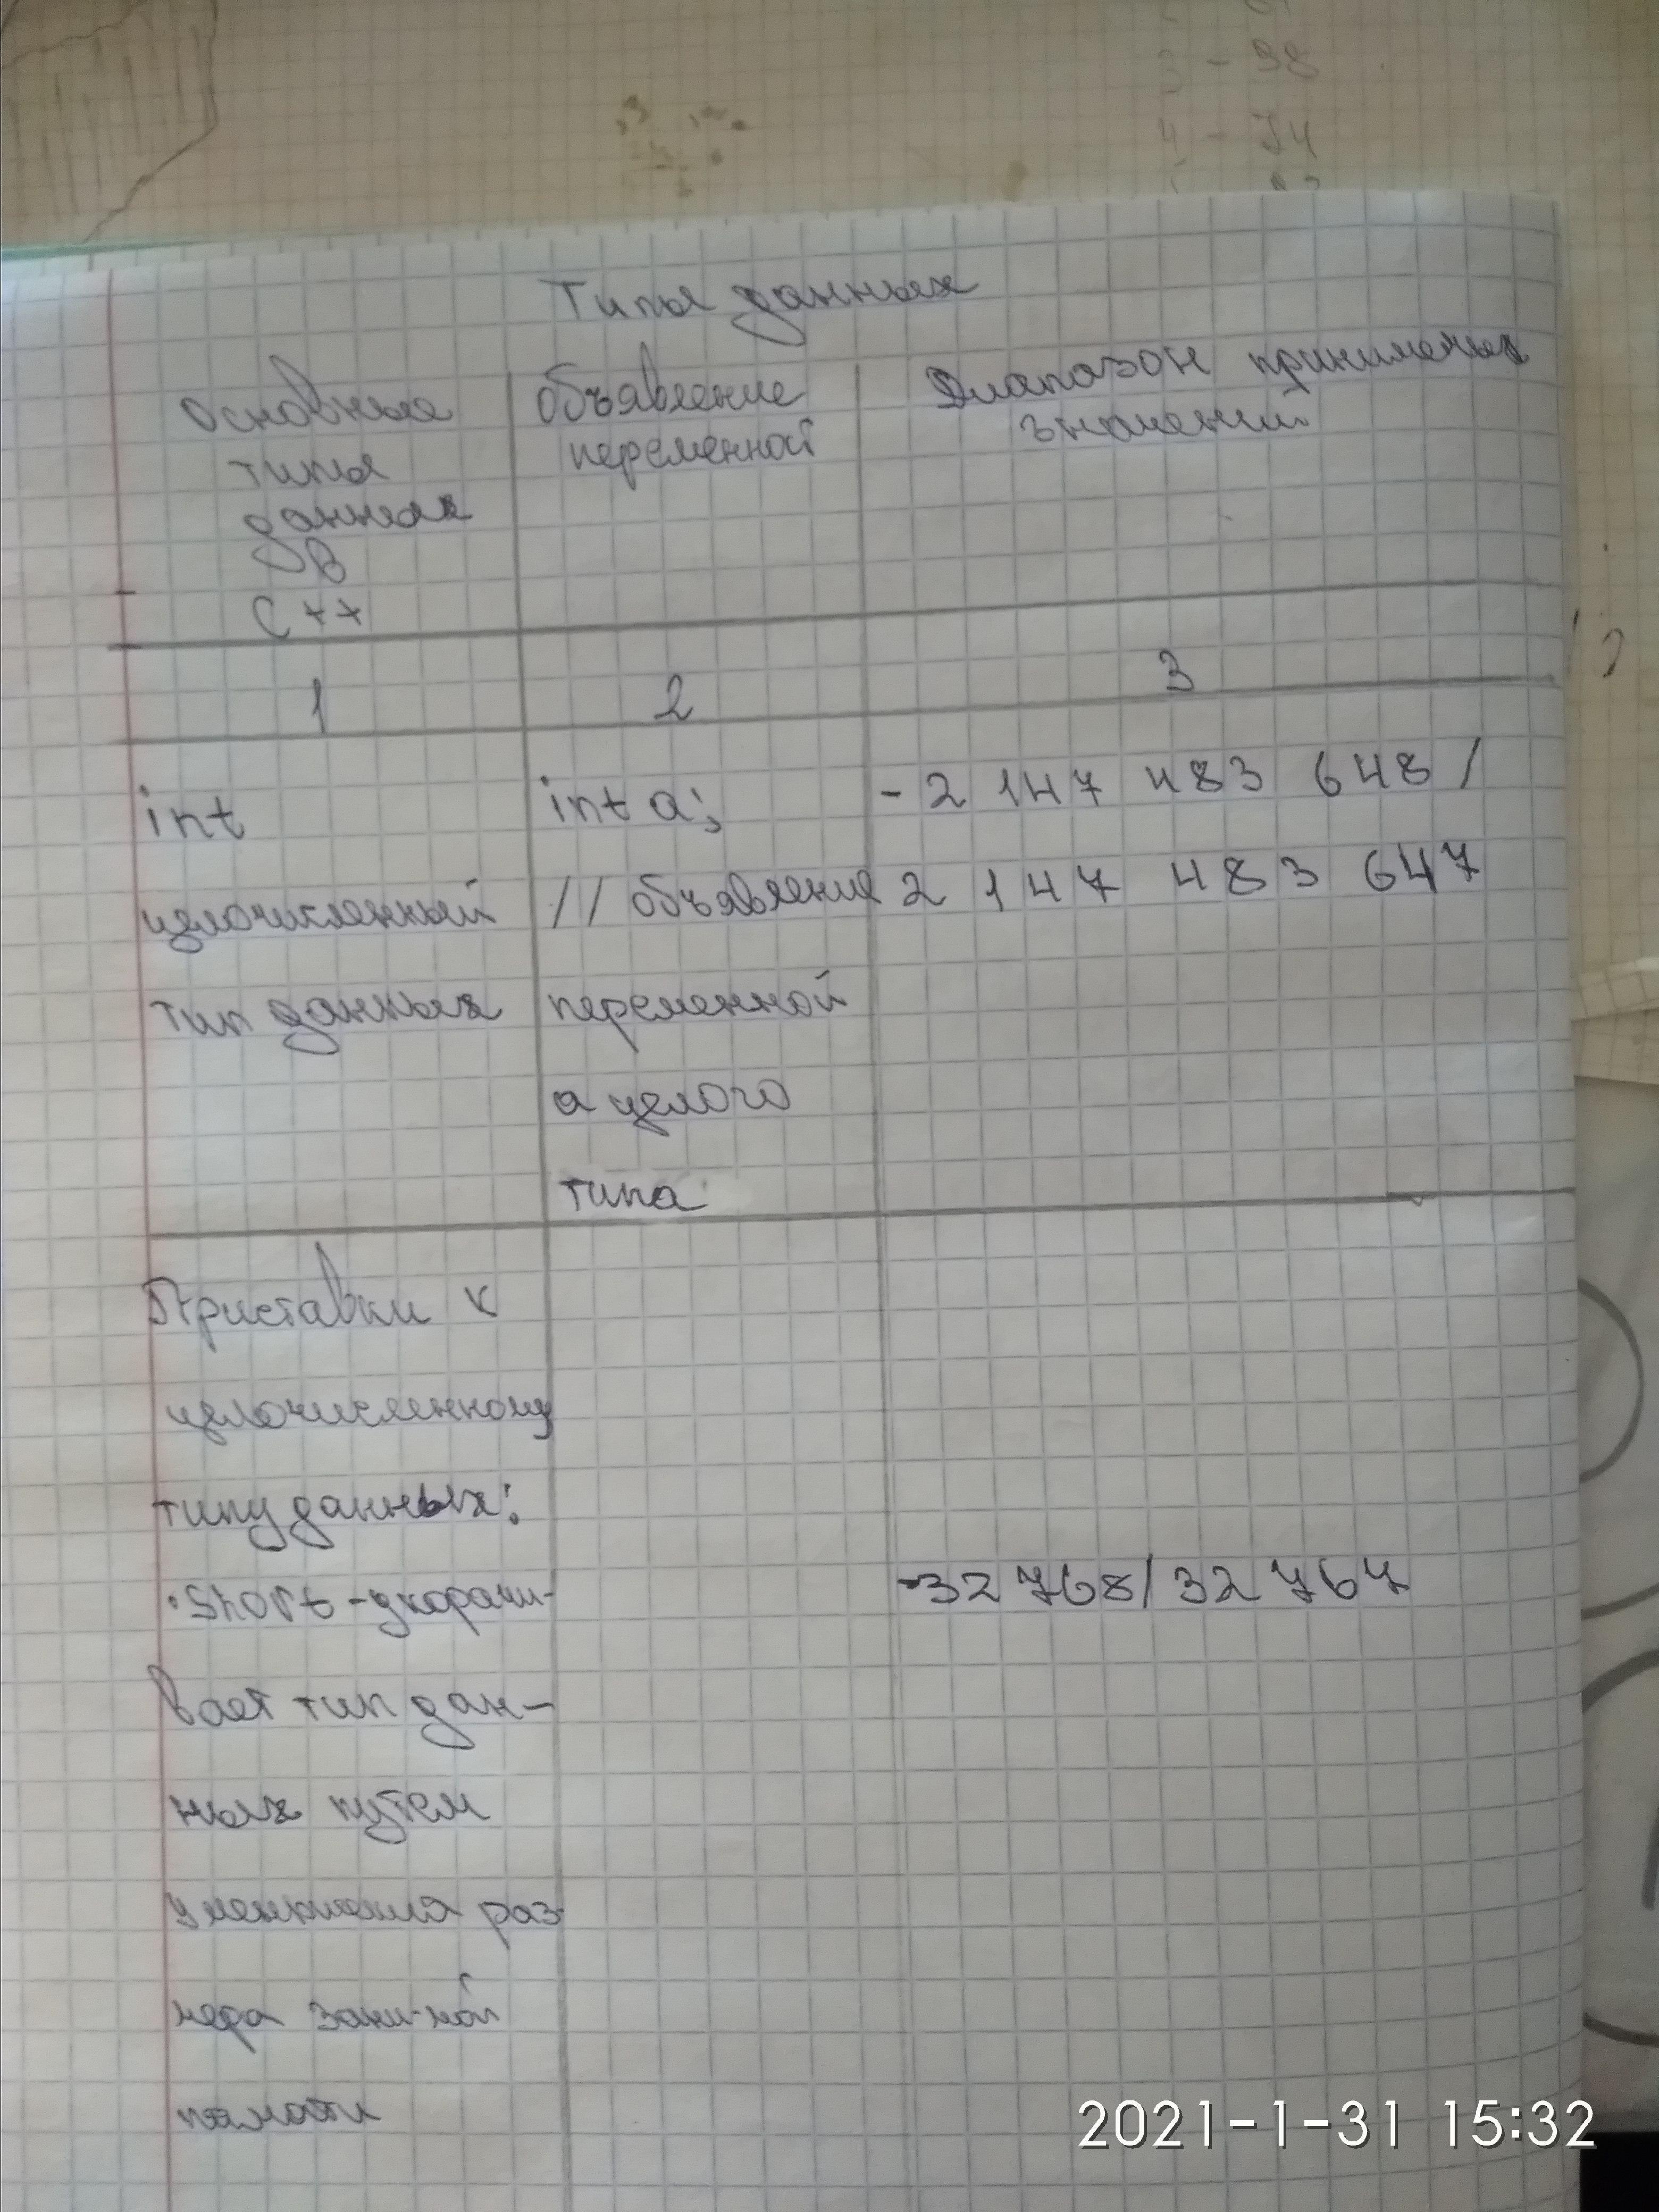 3 - 98
4 - 74
Типы данных
Основные
типы
данных
в
С++
объявление
переменной
Диапазон принимаемых
значений
1
2
3
int
целочисленный
тип данных
int a;
// объявление
переменной
а целого
типа
- 2 147 483 648 /
2 147 483 647
Приставки к
целочисленному
типу данных:
• short - укорачи-
вает тип дан-
ных путем
уменьшения раз-
мера зани-мой
памяти
-32 768/ 32 767
2021-1-31 15:32